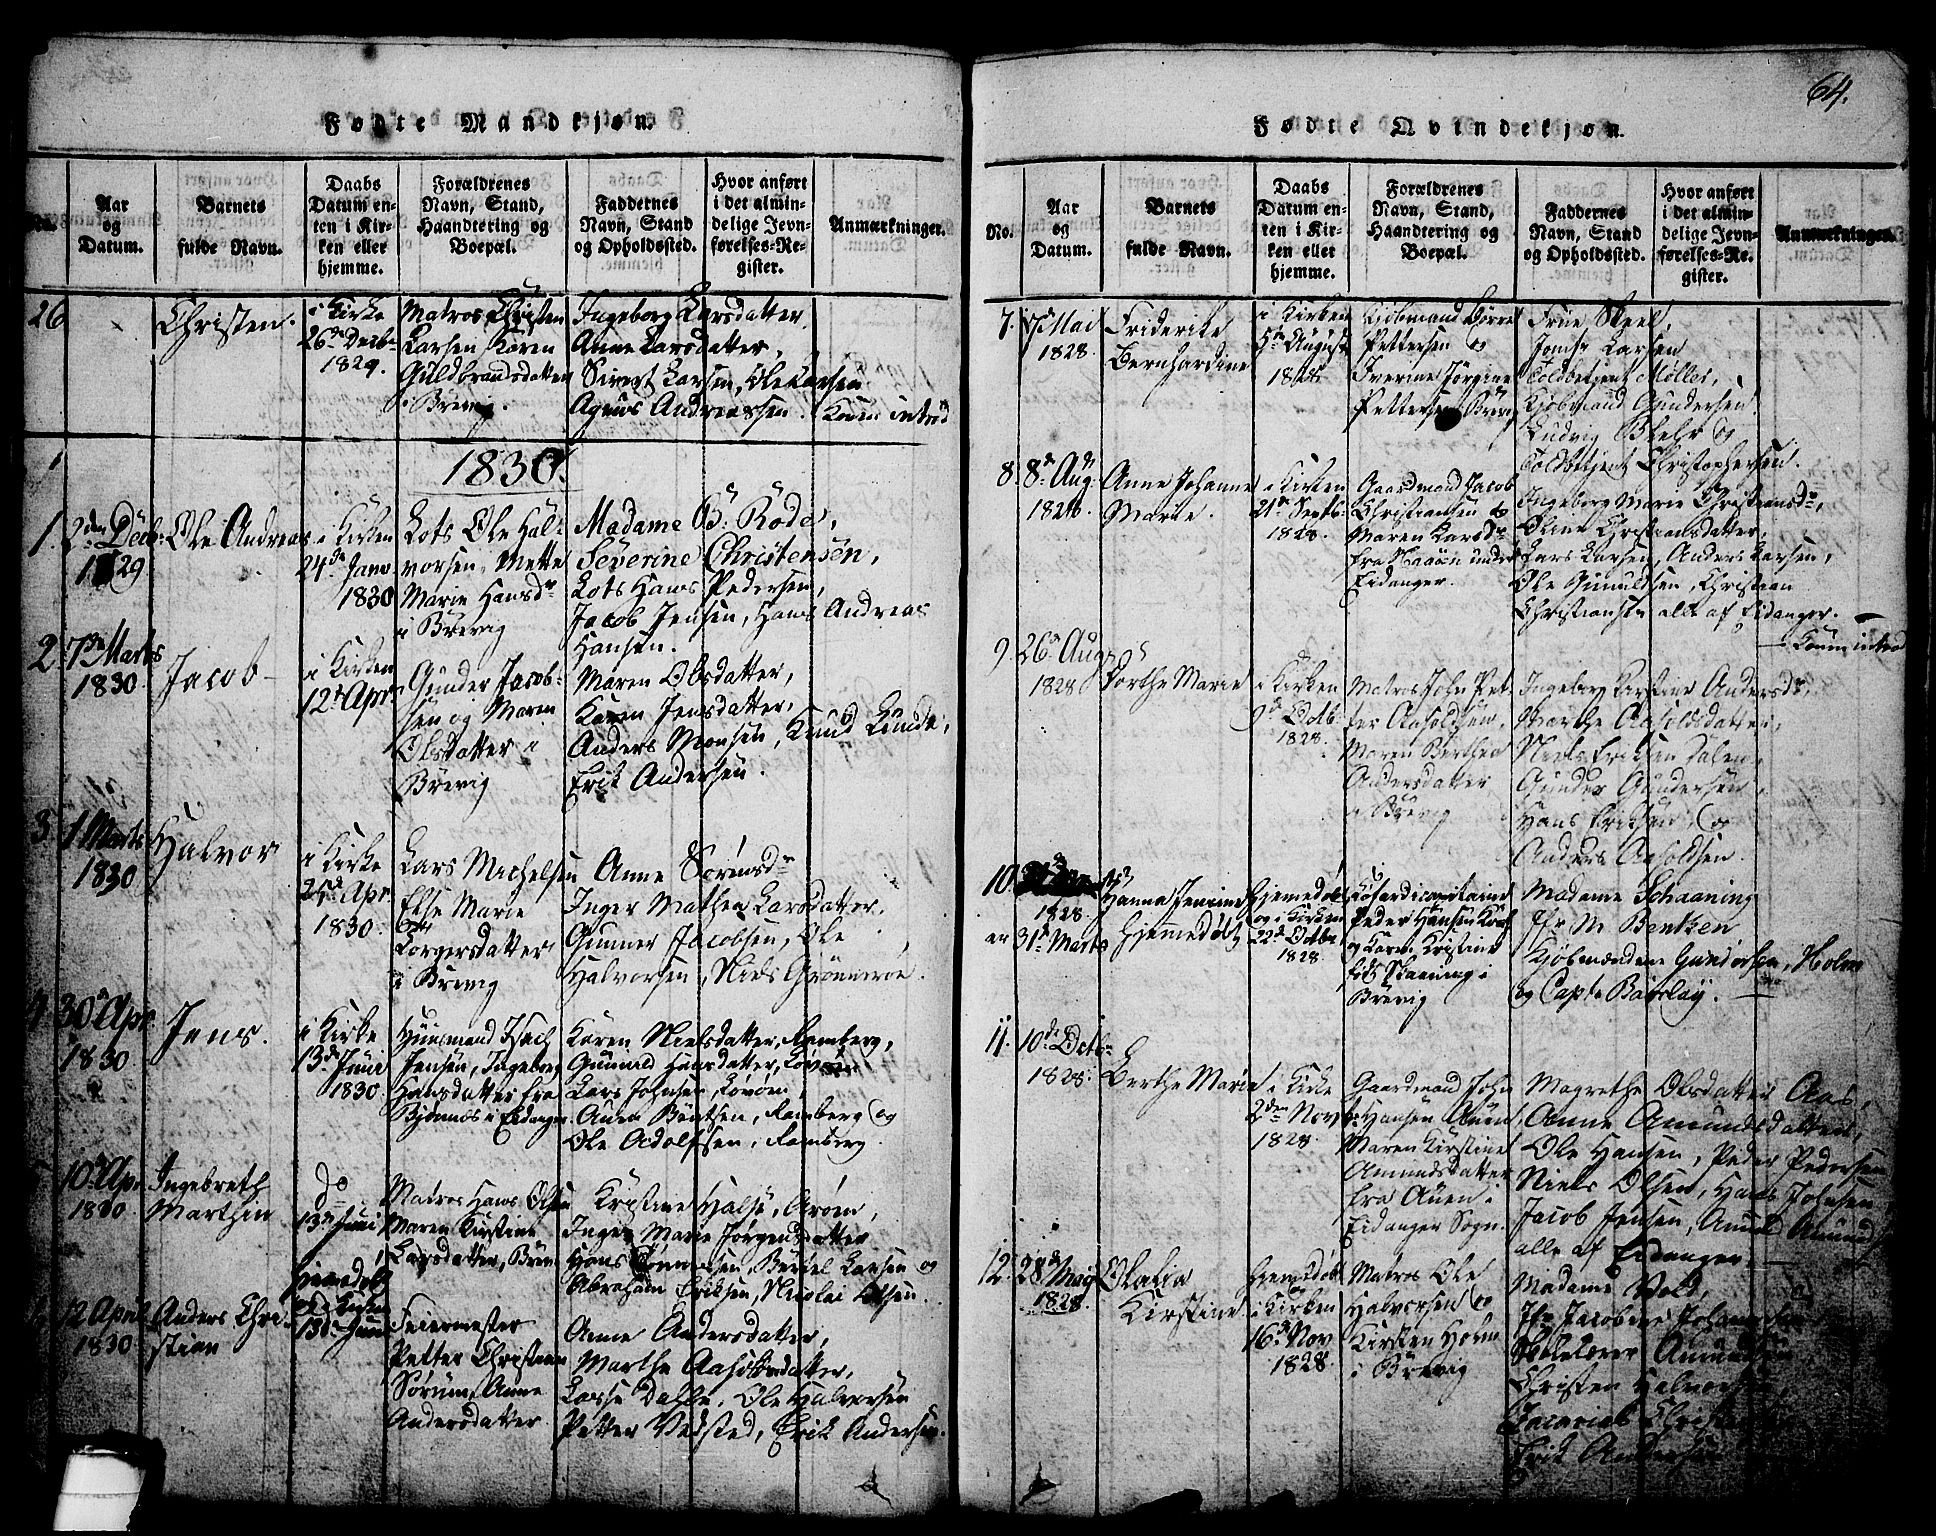 Fødte Mandkjøn.
Aar og Datum.
Barnets fulde Navn.
Daabs Datum enten i Kirken eller hjemme.
Forældrenes Navn, Stand, Haandtering og Boepæl.
Faddernes Navn, Stand og Opholdssted.
Hvor anført i det almindelige Jevnførelses-Register.
Anmærkninger.
26
Christen.
i Kirke
26de Decbr
1829.
Matros Christen
Larsen Karen
Guldbrandsdatter
i Brevig.
Ingeborg Larsdatter,
Anne Larsdatter,
Sivert Larsen, Ole Larsen
Agnus Andreassen.
Konen introd
1830.
1.
2den Decb.
1829
Ole Andreas
i Kirken
24de Janv
1830
Lots Ole Hal-
vorsen, Mette
Marie Hansdr
i Brevig
Madame B. Rode,
Severine Christensen,
Lots Hans Pedersen,
Jacob Jensen, Hans Andreas
Hansen.
2.
7de Marts
1830.
Jacob
i Kirken
12te Apr.
Gunder Jacob-
sen og Maren
Olsdatter i
Brevig
Maren Olsdatter,
Karen Jensdatter,
Anders Monsen, Knud Lunde,
Erik Andersen.
3.
1 Marts
1830
Halvor
i Kirke
25de Apr.
1830.
Lars Michelsen
Else Marie
Torgersdatter
i Brevig
Anne Sørensdr
Inger Mathea Larsdatter,
Gunner Jacobsen, Ole
Halvorsen, Niels Grønnerøe.
4
30de Apr
1830
Jens.
i Kirke
13de Juni
1830
Huusmand Isach
Jensen, Ingeborg
Hansdatter fra
Bjønnes i Eidanger.
Karen Nielsdatter, Ramberg,
Gunild Hansdatter,
Lars Johnsen,
Ramberg og
Ole Adolfssen, Ramberg.
10de Apr
1830
Ingebreth
Marthin
do
13de Juni
Matros Hans Olsen
Maren Kirstine
Larsdatter,
Kristine Halse, Arøen,
Inger Marie Jørgensdatter
Hans
Bertel Larsen og
Abraham Eriksen, Nicolai
12 April
1830
Anders Chri-
stian
hjemedøbt
og i Kirken
13de Juni
Feiermester
Petter Christian
Sørum, Anne
Andersdatter
Anne Andersdatter,
Marthe Aasoldsdatter,
Lasse Dalle, Ole Halvorsen
Petter Vedsted, Erik Andersen.
64.
Fødte Qvindekjøn.
No.
Aar og Datum.
Barnets fulde Navn.
Daabs Datum enten i Kirken eller hjemme.
Forældrenes Navn, Stand, Haandtering og Boepæl.
Faddernes Navn, Stand og Opholdssted.
Hvor anført i det almindelige Jevnførelses-Register.
Anmærkninger.
7.
7de Mai
1828.
Friderike
Bernhardine
i Kirken
5te August
1828
Kjøbmand
Pettersen og
Iverine Jørgine
Pettersen Brevig
Frue Skeel,
Jomfr Larsen
Toldbetjent Møller,
Kjøbmand Gundersen,
Ludvig Blehr og
Toldbetjent Christophersen.
8.
8de Aug.
1828
Anne Johanne
Marie.
i Kirken
21de Septb.
1828.
Gaardmand Jacob
Christiansen og
Maren Larsdr
Eidanger.
Ingeborg Marie Christiansdr,
Oline Christiansdatter,
Lars Larsen, Anders Larsen,
Ole Gunuldsen, Christian
Christiansen alle af Eidanger.
Konen introd
9.
26de Aug
1828
Dorthe Marie
i Kirken
9de Octb.
1828.
Matros John Pet-
ter Aasoldsen,
Maren Berthea
Andersdatter
i Brevig
Ingeborg Kirstine Andersdr,
Marthe Aasoldsdatter,
Niels Eriksen Dalen,
Gunder Gundersen,
Hans Eriksen, og
Anders Aasoldsen.
10.
1828.
31te Marts
Hanna Jensine
Hjemedøbt
Hjemedøbt
og i Kirken
22de Octbr
1828.
Kofardicapitaine
Peder Hansen
og Karen Kristine
i
Brevig
Madame Schaaning
Jfr M. Bentzen
Kjøbmændene Gundersen, Holm
og Capt. Barclay.
11.
10de Octb.
1828.
Berthe Marie
i Kirke
2den Nov
1828.
Gaardmand John
Hansen Auen,
Maren Kirstine
Amundsdatter
fra Auen i
Eidanger Sogn.
Magrethe Olsdatter Aas,
Anne Amundsdatter,
Ole Hansen, Peder Pedersen
Niels Olsen, Hans Johnsen
Jacob Jensen, Amund Amunds
alle af Eidanger
12.
28de May
1828.
Olalia
Kirstine
Hjemedøbt
i Kirken
16de Nov
1828.
Matros Ole
Halvorsen og
Kirsten Holm
i Brevig
Madame Vold,
Jfr Jacobine
Amundsen
Christen Halvorsen,
Zacarias
Erik Andersen